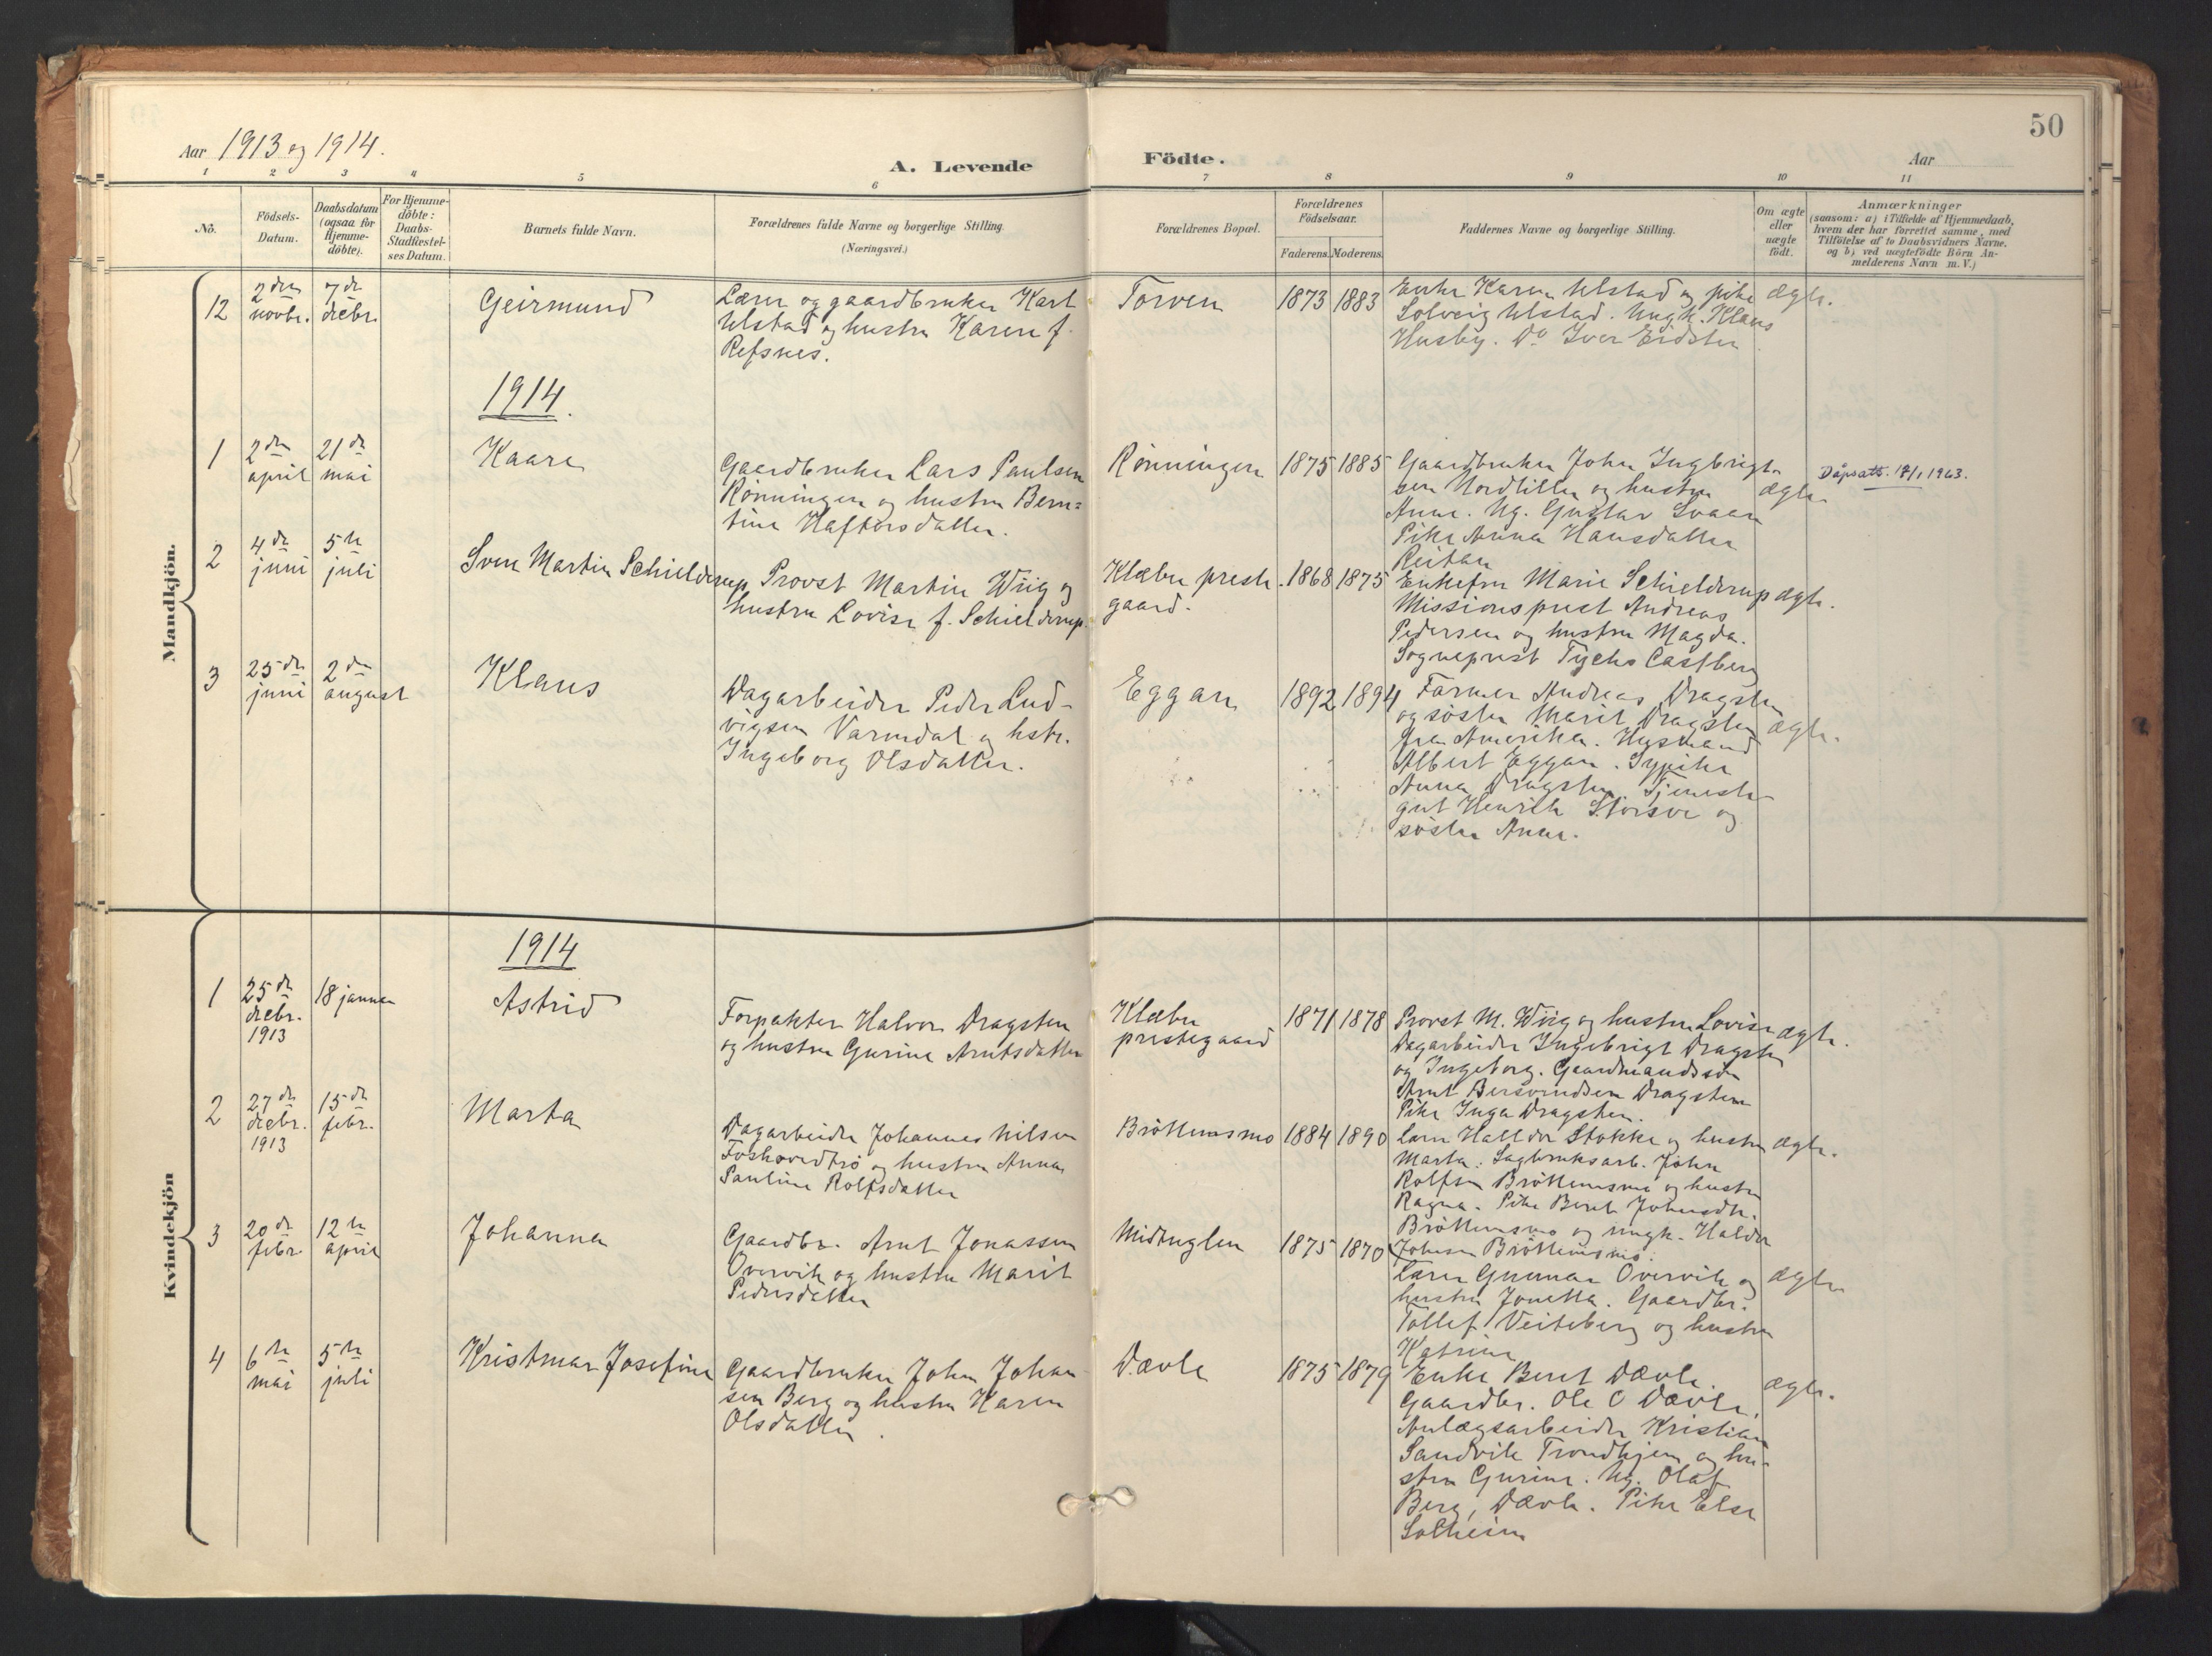 50
Aar 1913 og 1914.
A. Levende Födte.
Aar
1 2 3 4 5 6 7 8 9 10 11
No.
Födsels-
Datum.
Daabsdatum
(ogsaa for
Hjemme-
döbte).
For Hjemme-
döbte:
Daabs-
Stadfæstel-
ses Datum.
Barnets fulde Navn.
Forældrenes fulde Navne og borgerlige Stilling.
(Næringsvei.)
Forældrenes Bopæl.
Forældrenes
Födselsaar.
Faderens. Moderens.
Faddernes Navne og borgerlige Stilling.
Om ægte
eller
uægte
födt.
Anmærkninger
(saasom: a) i Tilfælde af Hjemmedaab,
hvem der har forrettet samme, med
Tilföielse af to Daabsvidners Navne.
og b) ved uægtefödte Börn An-
melderens Navn m. V.)
Mandkjön.
12
2den
novbr.
7de
decbr.
Geirmund
Lærer og gaardbruker Karl
Ulstad og hustru Karen f.
Refsnes.
Torven
1873 1883
Enke Karen Ulstad og pike
Solveig Ulstad. Ungk. Klaus
Husby. Do Iver Eidsten
ægte.
1914.
1
2den
april
21de
mai
Kaare
Gaardbruker Lars Paulsen
Rönningen og hustru Bern=
tine Haftorsdatter.
Rönningen
1875 1885
Gaardbruker John Ingbrigt-
sen Nordtiller og hustru
Anne. Ug. Gustav Svaan
Pike Anna Hansdatter
Reitan
ægte
Dåpsatt. 1963.
2
4de
juni
5te
juli
Sven Martin Schielderup
Provst Martin Wiig og
hustru Lovise f. Schielderup.
Klæbu preste-
gaard.
1868 1875
Enkefru Marie Schielderup
Missionsprest Andreas
Pedersen og hustru Magda.
Sogneprest Tycho Castberg
ægte.
3
25de
juni
2den
august
Klaus
Dagarbeider Peder Lud-
vigsen Varmdal og hstr.
Ingeborg Olsdatter.
Eggan
1892 1894
Farmer Andreas Dragsten
og söster Marit Dragsten
fra Amerika. Husmand
Albert Eggan. Sypike
Anna Dragsten Tjeneste-
gut Henrik Storsve og
söster Anne.
ægte.
Kvindekjön
1914
1
25de
decbr.
1913
18 januar
Astrid
Forpakter Halvor Dragsten
og hustru Gurine Arntsdatter
Klæbu
prestegaard
1871 1878
Provst M. Wiig og hustru Lovise
Dagarbeider Ingebrigt Dragsten
og Ingeborg. Gaardmandssön
Arnt Bersvendsen Dragsten
Pike Inga Dragsten.
ægte.
2
27de
decbr.
1913
15de
febr.
Marta
Dagarbeider Johannes Nilsen
Foshovedtrö og hustru Anna
Pauline Rolfsdatter
Bröttemsmo
1884 1890
Lærer Halldor Stokke og hustru
Marta. Sagbruksarb. John
Rolfsen Bröttemsmo og hustru
Ragna. Pike Beret Johnsdtr.
Bröttemsmo og ungk. Haldor
Johnsen Bröttemsmo.
ægte.
3
20de
febr.
12te
april
Johanna
Gaardbr. Arnt Jonassen
Övervik og hustru Marit
Pedersdatter
Miduglen
1875 1870
Lærer Gunnar Övervik og
hustru Jonetta. Gaardbr.
Tollef Veiteberg og hustru
Katrine
ægte
4
6te
mai
5te
juli
Kristmar Josefine
Gaardbruker John Johan-
sen Berg og hustru Karen
Olsdatter.
Dævle
1875 1879
Enke Beret Dævle.
Gaardbr. Ole O Dævle.
Anlægsarbeider Kristian
Sandvik Trondhjem og hu-
stru Gurine. Ug. Olaf
Berg, Dævle. Pike Else
Solheim
ægte.